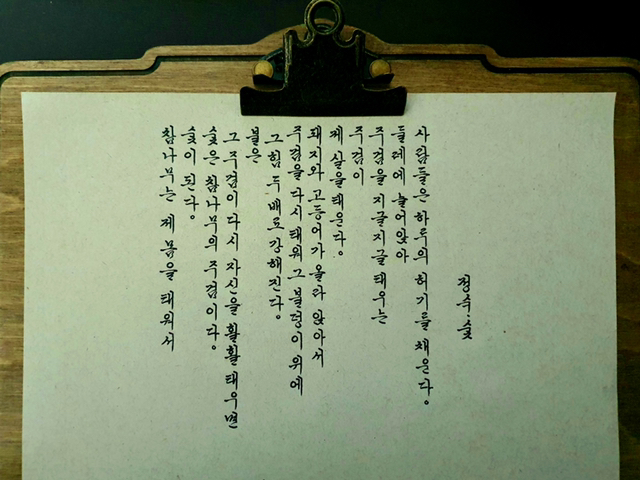 참나무는 제 몸을 태워서
숯이 된다.
숯은 참나무의 주검이다.
그 주검이 다시 자신을 활활 태우면
불은
그 힘 두 배로 강해진다.
주검을 다시 태워 그 불덩이 위에
돼지와 고등어가 올라 앉아서
제 살을 태운다.
주검이
주검을 지글지글 태우는
둘레에 늘어앉아
사람들은 하루의 허기를 채운다.
정숙.숯